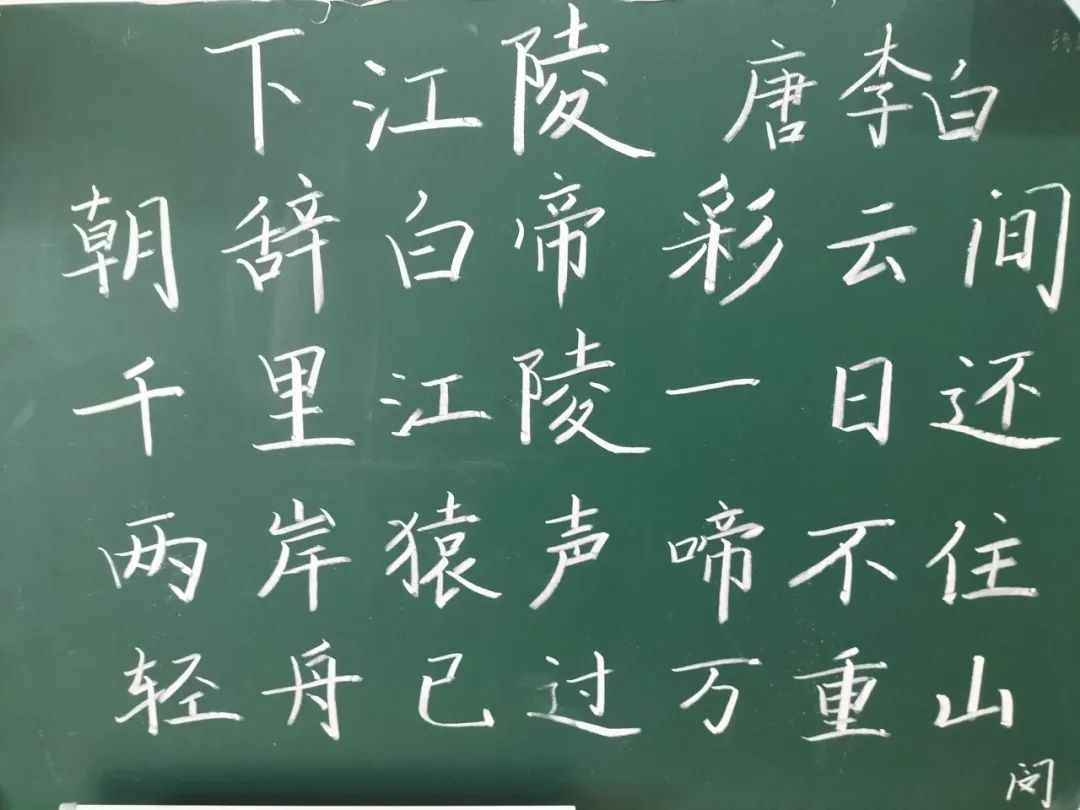 下江陵 唐 李白
朝辞白帝彩云间
千里江陵一日还
两岸猿声啼不住
轻舟已过万重山